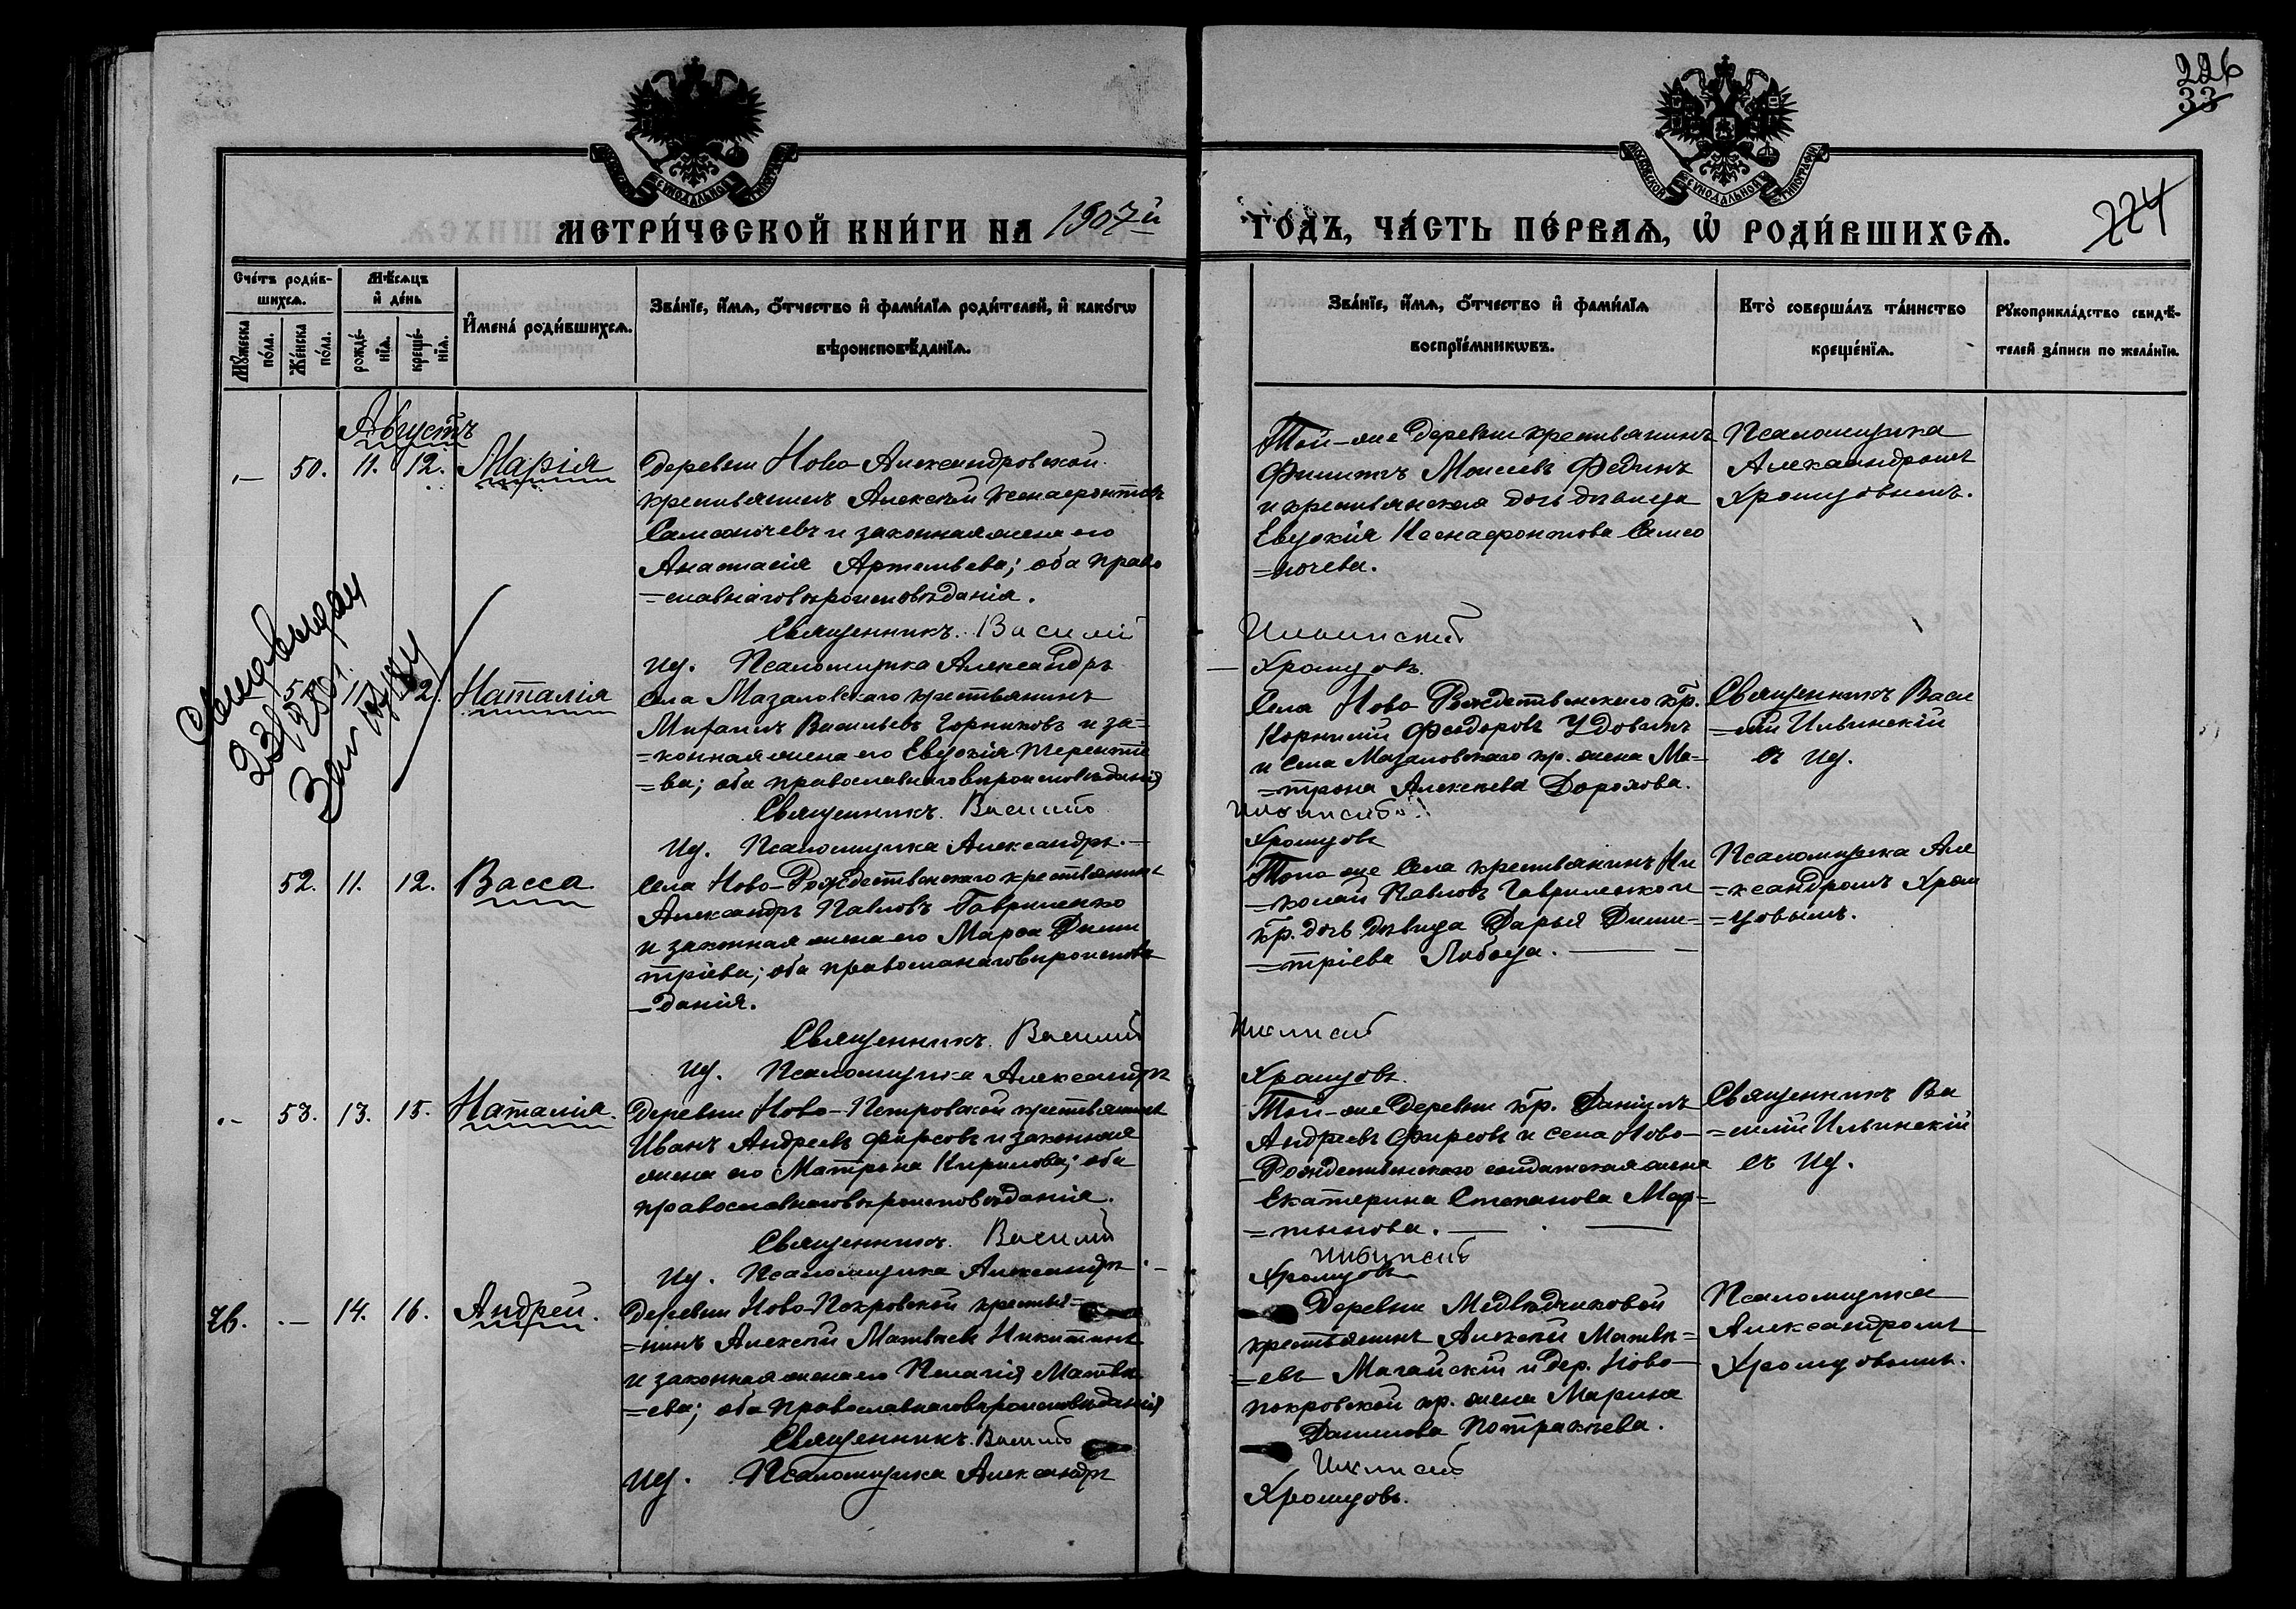 226
33
224
МЕТРИ́ЧЕСКОЙ КНИ́ГИ НА 1907й
ГО́ДЪ, ЧА́СТЬ ПЕ́РВАѦ, Ѡ҆ РОДИ́ВШИХСѦ.
Сче́тъ роди́в-
шихсѧ.
Мѣ́сѧцъ
и҆ де́нь
Мꙋ́жеска
по́ла.
Же́нска
по́ла.
рожде́-
нїѧ.
креще́-
нїѧ.
И҆мена̀ роди́вшихсѧ.
Зва́нїе, и҆́мѧ, ѻ҆́тчество и҆ фами́лїѧ роди́телей, и҆ како́гѡ
вѣроисповѣ́данїѧ.
Зва́нїе, и҆́мѧ, ѻ҆́тчество и҆ фами́лїѧ
воспрїе́мникѡвъ.
Кто̀ соверша́лъ та́инство
креще́нїѧ.
Рꙋкоприкла́дство свидѣ́-
телей за́писи по жела́нїю.
Августъ
50. 11. 12. Марія
Деревни Ново-Александровской
крестьянинъ Алексѣй Ксенафонтовъ
Самсонычевъ и законная жена его
Анастасія Артемьева; оба право
=славнаго вѣроисповѣданія.
Священникъ. Василій
Ид. Псаломщика Александръ
Той-же деревни крестьянинъ
Филиппъ Моисеевъ Фединъ
и крестьянская дочь дѣвица
Евдокія Ксенафонтова Самсо
=нычева.
Ильинскій
Храмцовъ.
Псаломщика
Александромъ
Храмцовымъ.
Свид. выдан
Наталія
Села Мазаловскаго крестьянинъ
Митрофанъ Васильевъ Горниковъ и за=
=конная жена его Евдокія Терентье
=ва; оба православнаго вѣроисповѣданія
Священникъ. Василій
Ид. Псаломщика Александръ.
Села Ново-Рождественскаго кр.
Корнилій Феодоровъ Удовинъ
и села Мазаловскаго кр. жена Ма=
=трона Алексѣева Дорохова.
Ильинскій
Храмцовъ
Священникъ Васи
=лій Ильинскій
съ Ид.
52. 11. 12. Васса
Села Ново-Рождественскаго крестьянинъ
Александръ Павловъ Гавриленко
и законная жена его Марѳа Дими
тріева; оба православнаго вѣроисповѣ
=данія.
Священникъ. Василій
Ид. Псаломщика Александръ
Того-же села крестьянинъ Ни
=колай Павловъ Гавриленко и
кр. дочь дѣвица Дарья Дими=
=тріева Лобода.
Ильинскій
Храмцовъ.
Псаломщика Але
=ксандромъ Храм
=цовымъ.
53. 13. 15. Наталія.
Деревни Ново-Петровской крестьянинъ
Иванъ Андреевъ Фирсовъ и законная
жена его Матрона Кирилова; оба
православнаго вѣроисповѣданія.
Священникъ. Василій
Ид. Псаломщика Александръ
Той-же деревни кр. Даніилъ
Андреевъ Фирсовъ и села Ново-
Рождественскаго солдатская жена
Екатерина Степанова Мар=
=тынова.
Ильинскій
Храмцовъ
Священникъ Ва
=силій Ильинскій
съ Ид.
14. 16. Андрей.
Деревни Ново-Покровской крестья=
=нинъ Алексѣй Матвѣевъ Никитинъ
и законная жена его Пелагія Матвѣ
=ева; оба православнаго вѣроисповѣданія
Священникъ. Василій
Ид. Псаломщика Александръ
Деревни Медвѣдчиковой
крестьянинъ Алексѣй Матвѣ=
=евъ Магайскій и дер. Ново-
покровской кр. жена Марина
Данилова Потракеева.
Ильинскій
Храмцовъ.
Псаломщика
Александромъ
Храмцовымъ.